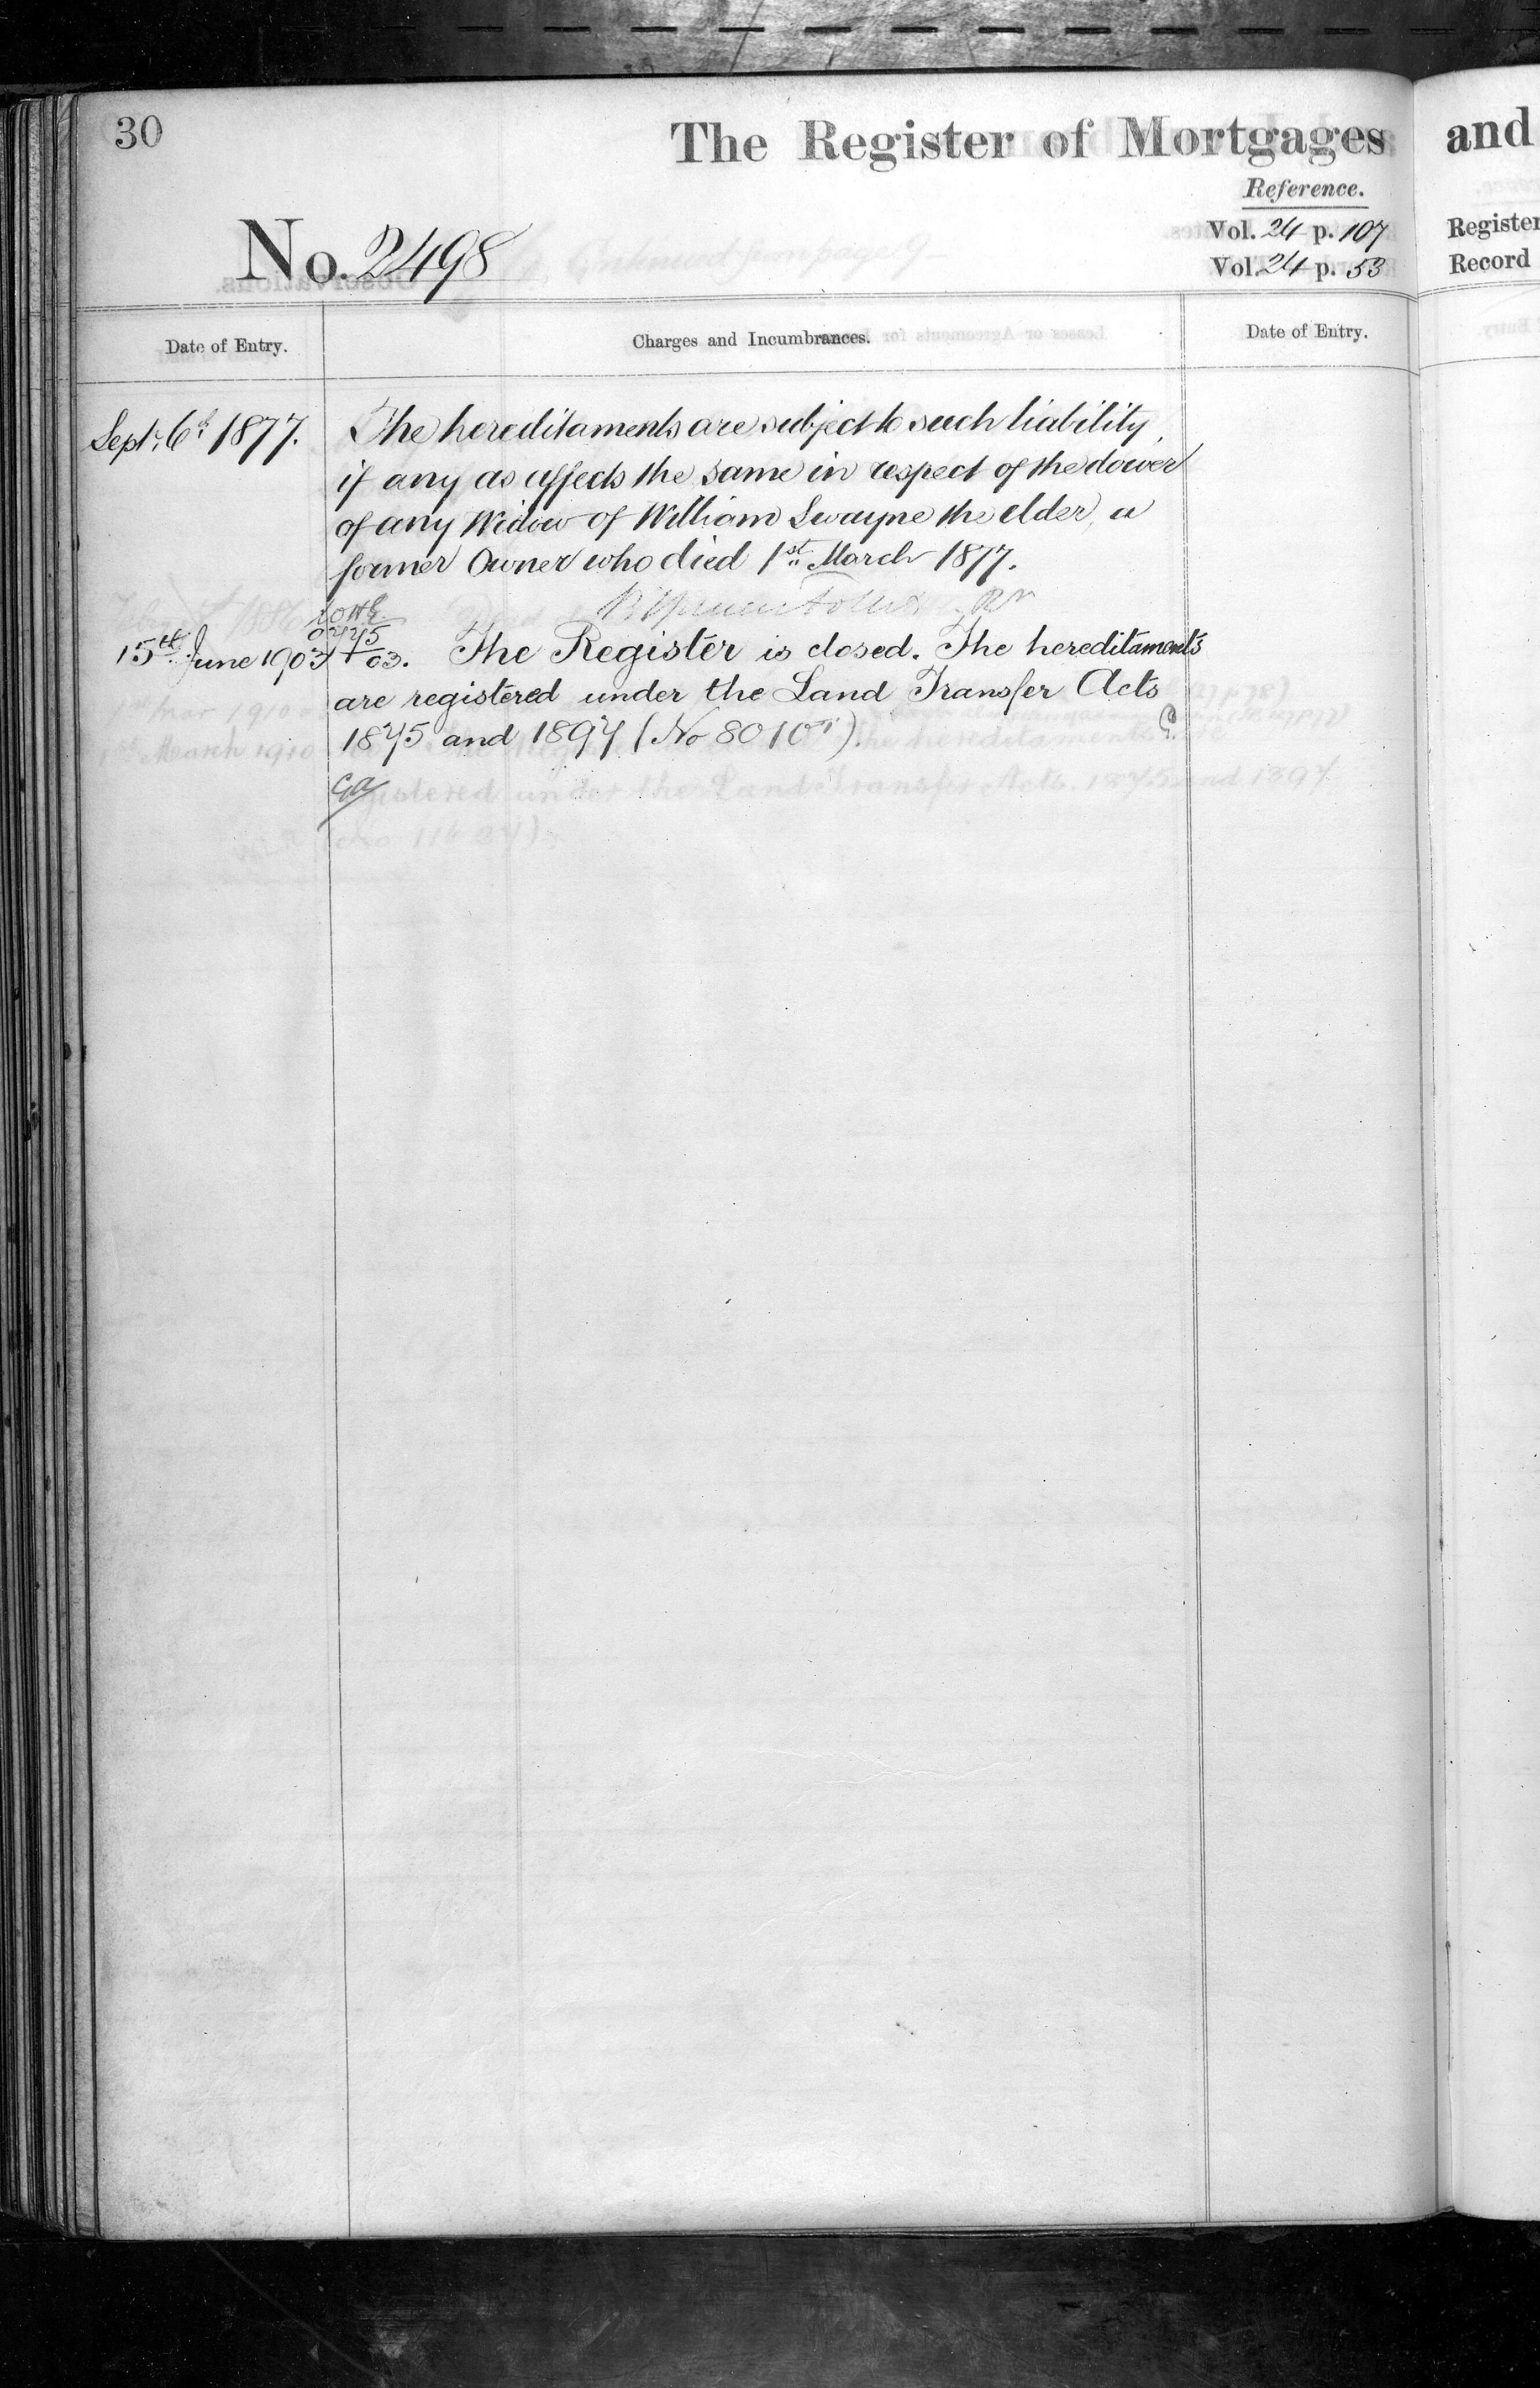 30
The Register of Mortgages and
Reference.
No. 2498
Vol. 24 p. 107 Register
Vol. 24 p. 53 Record
Date of Entry. Charges and Incumbrances. Date of Entry.
Sept. 6th 1877. The hereditaments are subject to such liability,
if any as affects the same in respect of the dower
of any Widow of William Swayne the elder, a
former Owner who died 1st March 1877.
15th June 1903 The Register is closed. The hereditaments
are registered under the Land Transfer Acts
1875 and 1897 (No 8010